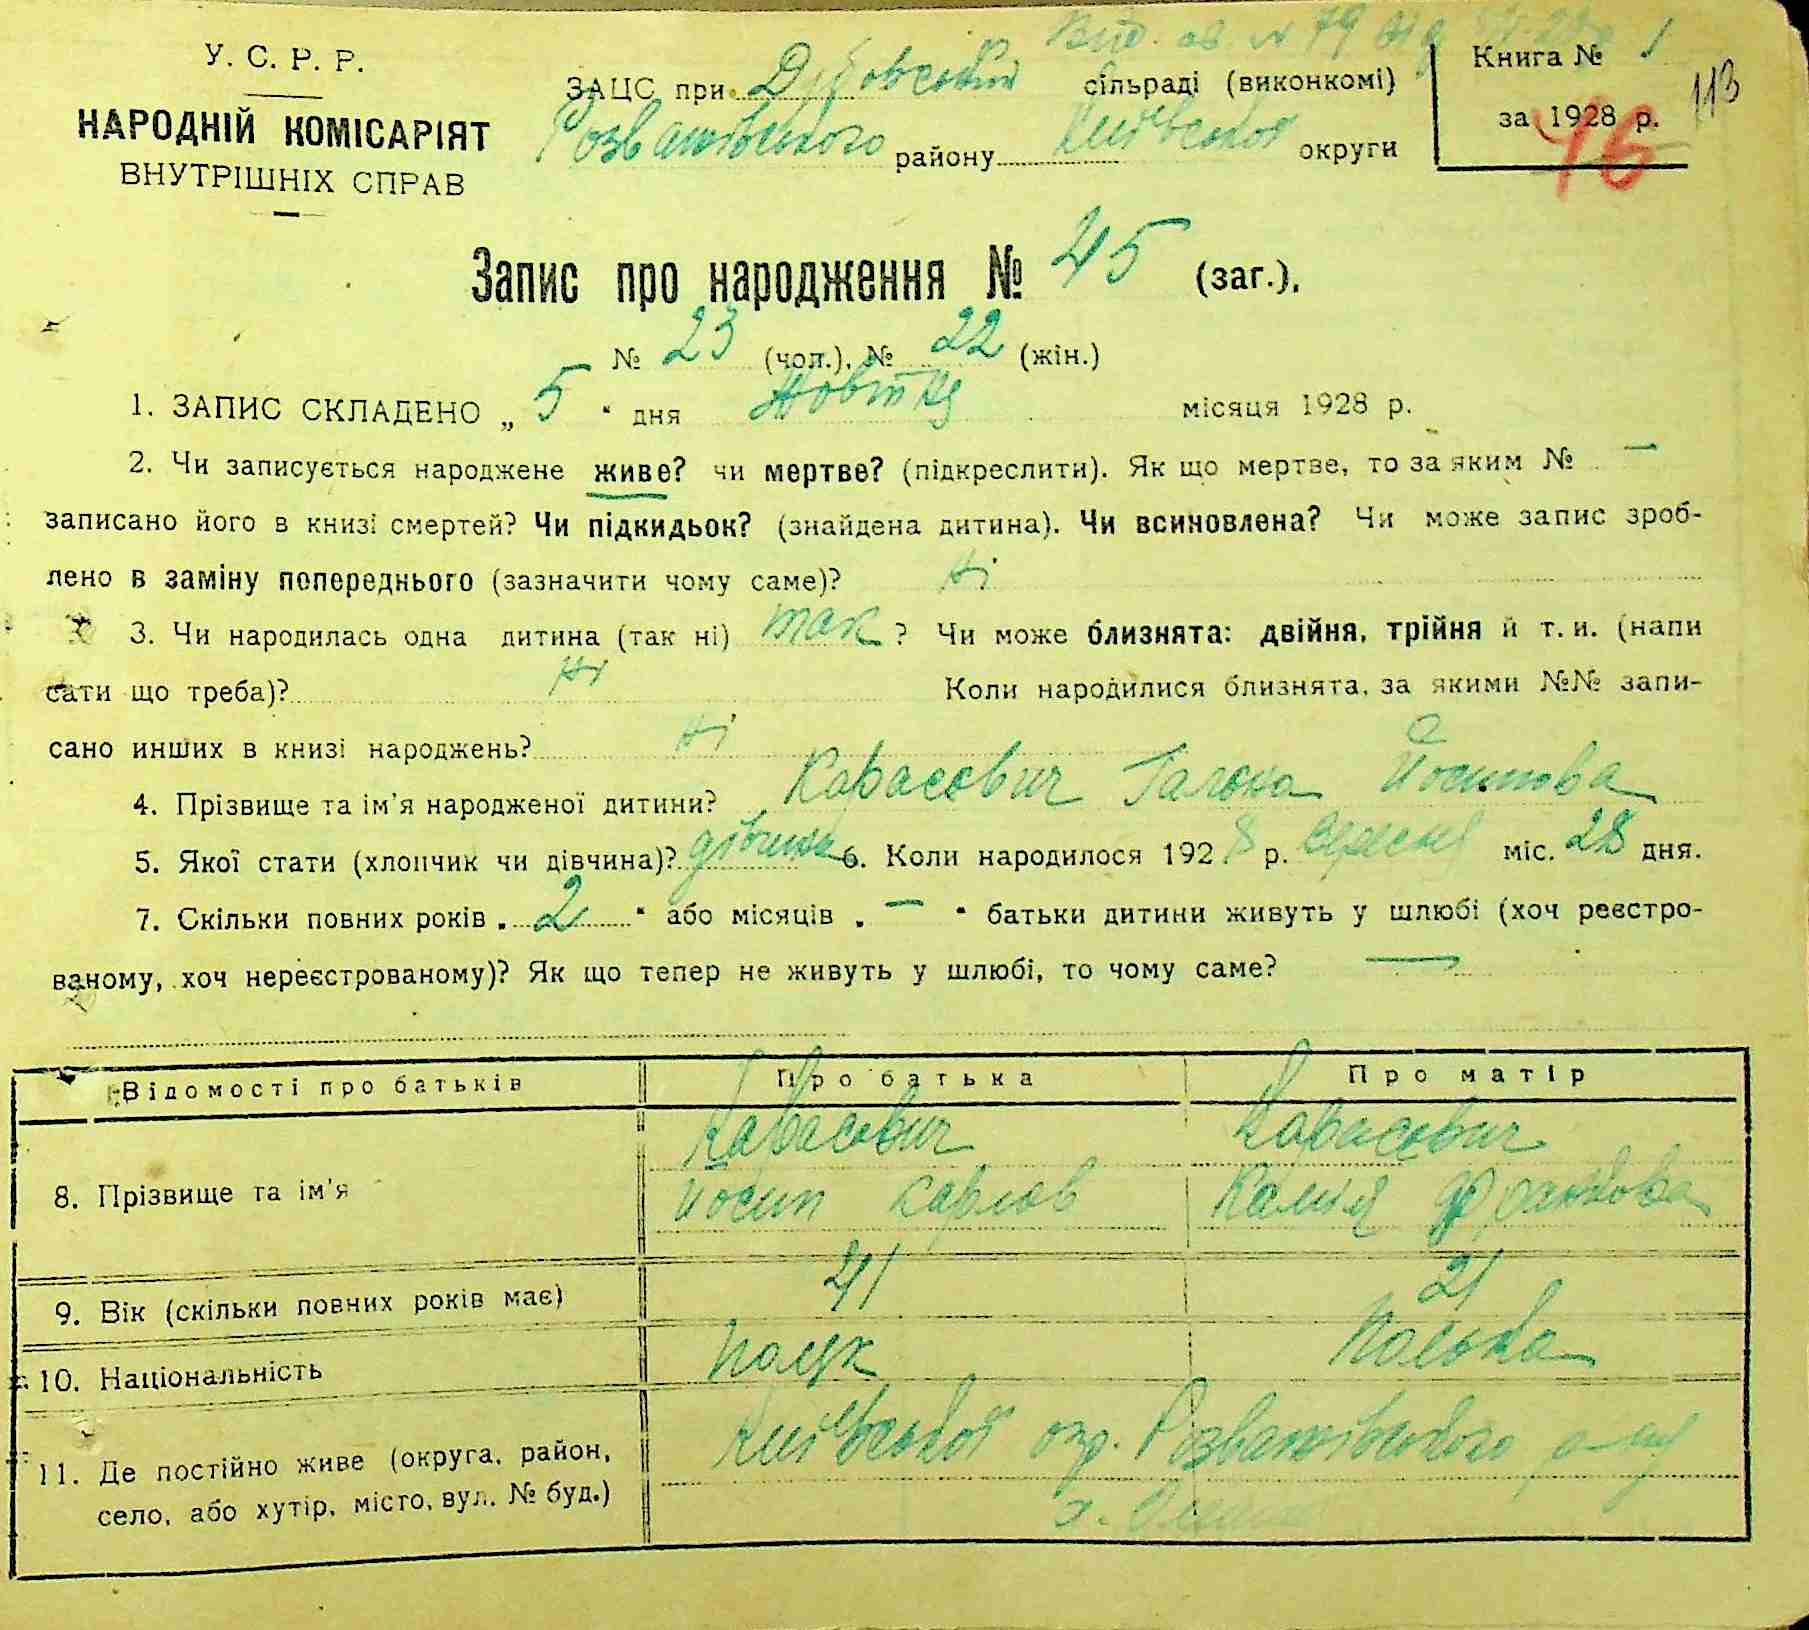 У. С. Р. Р.
НАРОДНІЙ КОМІСАРІЯТ
ВНУТРІШНІХ СПРАВ
ЗАЦС при Дубовській сільраді (виконкомі)
Розважівського району Київської округи
Книга № 1
за 1928 р.
113
46
Запис про народження № 45 (заг.).
№ 23 (чол.), № 22 (жін.)
1. ЗАПИС СКЛАДЕНО „ 5 “ дня Жовтня місяця 1928 р.
2. Чи записується народжене живе? чи мертве? (підкреслити). Як що мертве, то за яким № —
записано його в книзі смертей? Чи підкидьок? (знайдена дитина). Чи всиновлена? Чи може запис зроб-
лено в заміну попереднього (зазначити чому саме)? Ні
3. Чи народилась одна дитина (так ні) так ? Чи може близнята: двійня, трійня й т. и. (напи
сати що треба)? Ні Коли народилися близнята, за якими №№ запи-
сано инших в книзі народжень? Ні
4. Прізвище та ім'я народженої дитини? Карасевич Галєна Йосипова
5. Якої стати (хлопчик чи дівчина)? дівчина 6. Коли народилося 192 8 р. Вересня міс. 28 дня.
7. Скільки повних років „ 2 “ або місяців „ — “ батьки дитини живуть у шлюбі (хоч реєстро-
ваному, хоч нереєстрованому)? Як що тепер не живуть у шлюбі, то чому саме? —
Відомості про батьків Про батька Про матір
8. Прізвище та ім'я Карасевич Йосип Карлов Карасевич Камія Франкова
9. Вік (скільки повних років має) 41 21
10. Національність Поляк Полька
11. Де постійно живе (округа, район, Київської окр. Розважівського р-ну
село, або хутір, місто, вул. № буд.) х.